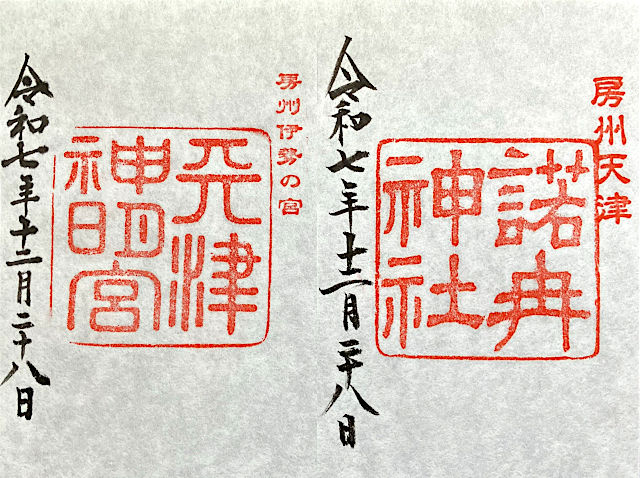 房州伊勢の宮
天津
神明宮
令和七年十二月二十八日
房州天津
諾冉
神社
令和七年十二月二十八日